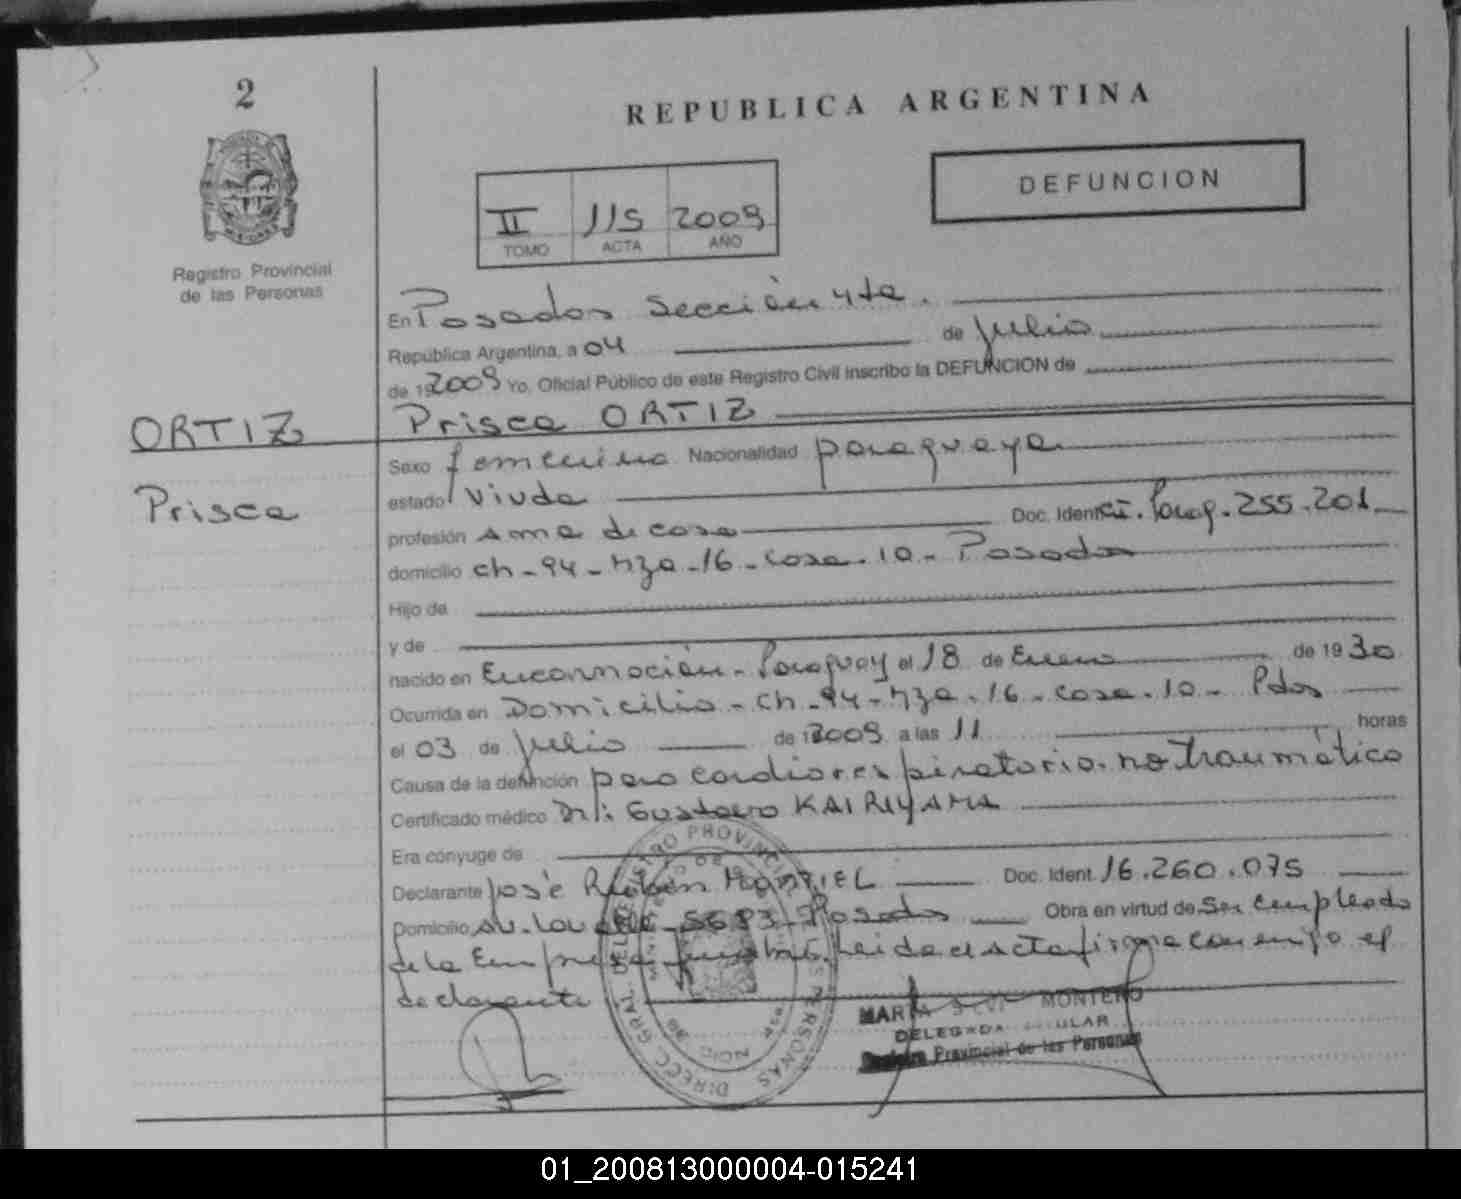 2
REPUBLICA ARGENTINA
DEFUNCION
II 115 2009
TOMO ACTA AÑO
Registro Provincial
de las Personas
En Posadas Sección 4ta.
República Argentina, a 04 de Julio
de 192009 Yo, Oficial Público de este Registro Civil inscribo la DEFUNCION de
ORTIZ
Prisca ORTIZ
Sexo femenino Nacionalidad paraguaya
Prisca
estado Viuda
profesión Ama de casa Doc. Ident. CI. Parag. 255.201
domicilio ch-94-Mza-16-casa-10-Posadas
Hijo de
y de
nacido en Encarnación-Paraguay el 18 de Enero de 1930
Ocurrida en Domicilio-ch-94-Mza-16-casa-10-Pdas
el 03 de Julio de 12009 a las 11 horas
Causa de la defunción paro cardiorespiratorio no traumático
Certificado médico Dr: Gustavo KAIRIYAMA
Era cónyuge de
Declarante José Rubén MONTIEL Doc. Ident. 16.260.075
Domicilio Av. 5683-Posadas Obra en virtud de Ser empleado
de la Empresa Leida el acta firma conmigo el
declarante
MARIA MONTERO
DELEGADA TITULAR
Registro Provincial de las Personas
01_200813000004-015241